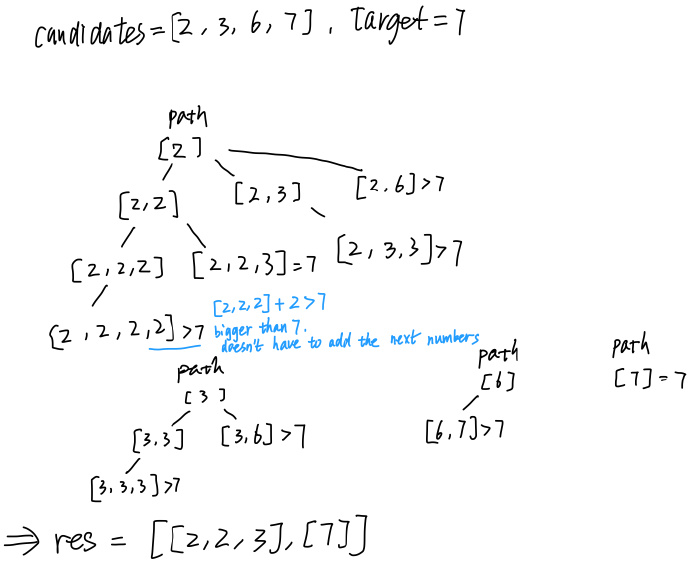 candidates = [2, 3, 6, 7], Target = 7
path
[2]
[2,2] [2,3] [2,6]>7
[2,2,2] [2,2,3]=7 [2,3,3]>7
[2,2,2,2]>7
[2,2,2]+2>7
bigger than 7.
doesn't have to add the next numbers
path
[3]
[3,3] [3,6]>7
[3,3,3]>7
path
[6]
[6,7]>7
path
[7]=7
⇒ res = [[2,2,3],[7]]